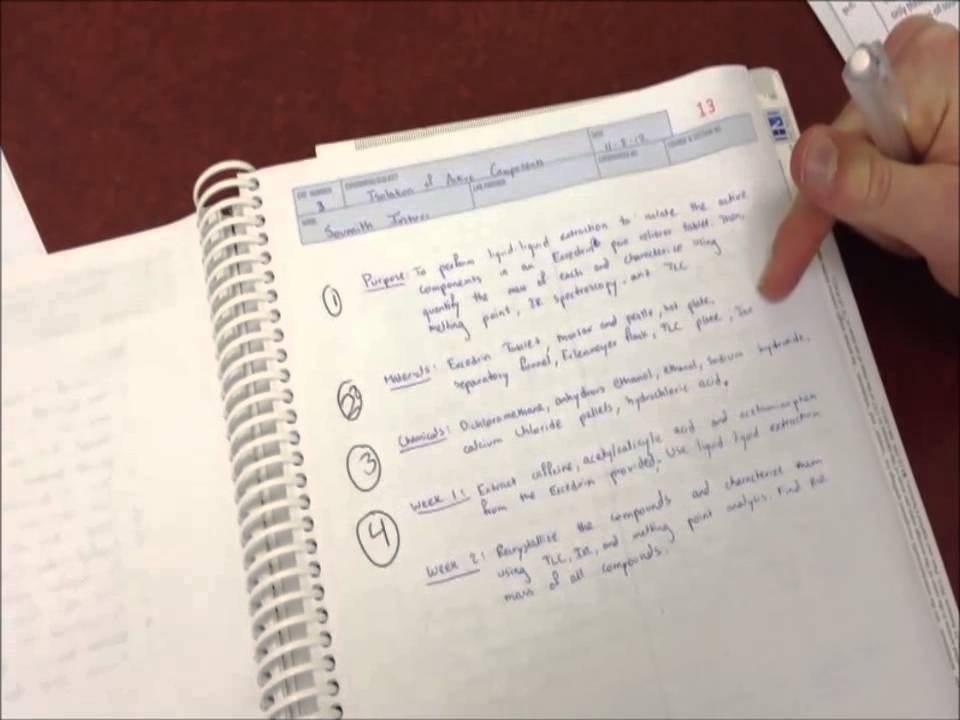 13
EXP. NUMBER
EXPERIMENT/SUBJECT
DATE
3
Isolation of Active Components
11-5-12
NAME
LAB PARTNER
LOCKER/DESK NO.
COURSE & SECTION NO.
Sovmith
① Purpose: To perform liquid-liquid extraction to isolate the active
components in an Excedrin pain reliever tablet. Then,
quantify the mass of each and characterize using
melting point, IR spectroscopy, and TLC
Materials: Excedrin Tablet, mortar and pestle, hot plate,
separatory funnel, Erlenmeyer flask, TLC plate,
2
Chemicals: Dichloromethane, anhydrous ethanol, ethanol, sodium hydroxide,
calcium chloride pellets, hydrochloric acid.
3
Week 1: Extract caffeine, acetylsalicylic acid and acetaminophen
from the Excedrin provided. Use liquid liquid extraction
4
Week 2: Recrystallize the compounds and characterize them
using TLC, IR, and melting point analysis. Find
mass of all compounds.